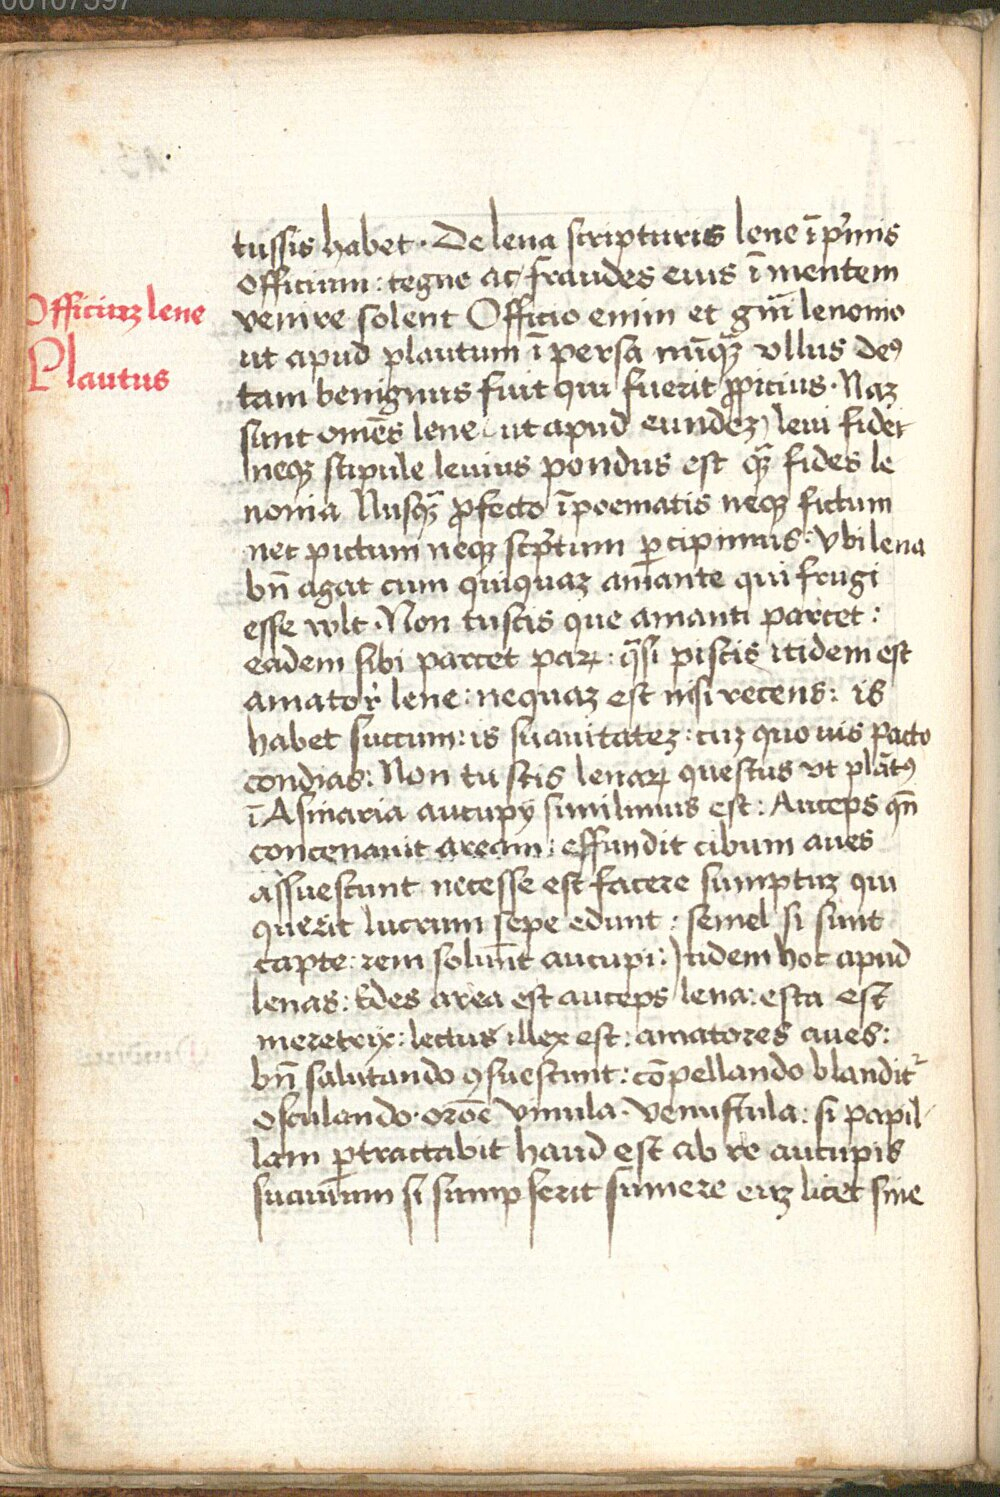 00107597
tussis habet. De lena scripturis lene īp̄mis
officium: tegne ac fraudes eius ī mentem
Officiuꝫ lene
venire solent Officio enim et gn̄i lenonio
ut apud plautum ī persa nūqꝫ̄ vllus deꝰ
Plautus
tam benignus fuit qui fuerit ꝓpicius. Naꝫ
sunt omēs lene ut apud eundeꝫ leui fidei
neqꝫ stipule leuius pondus est qꝫ̄ fides le
nonia Nusqꝫ̄ ꝓfecto ī poematis neqꝫ fictum
nec pictum neqꝫ scp̄tum ꝑcipimus. Vbi lena
bn̄ agat cum quiquaꝫ amante qui frugi
esse vult. Non tu scis que amanti parcet:
eadem sibi parcet paꝝ: q̄si piscis itidem est
amator lene: nequaꝫ est nisi recens: is
habet succum: is suauitateꝫ: cuꝫ quo uis pacto
condias: Non tu scis lenaꝝ questus vt plātꝰ
ī Asinaria aucupij similimus est: Auceps qn̄
concenauit aream: effundit cibum aues
assuescunt necesse est facere sumptuꝫ qui
querit lucrum sepe edunt: semel si sunt
capte: rem solūnt aucupi: Itidem hoc apud
lenas: Edes area est auceps lena: esca est
meretrix: lectus illex est: amatores aues:
bn̄ salutando ꝯsuescunt: cōpellando blanditᷣ
osculando. oroē vinula. venustula: si papil
lam ꝑtractabit haud est ab re aucupis
suauium si sumpserit sumere euꝫ licet sine